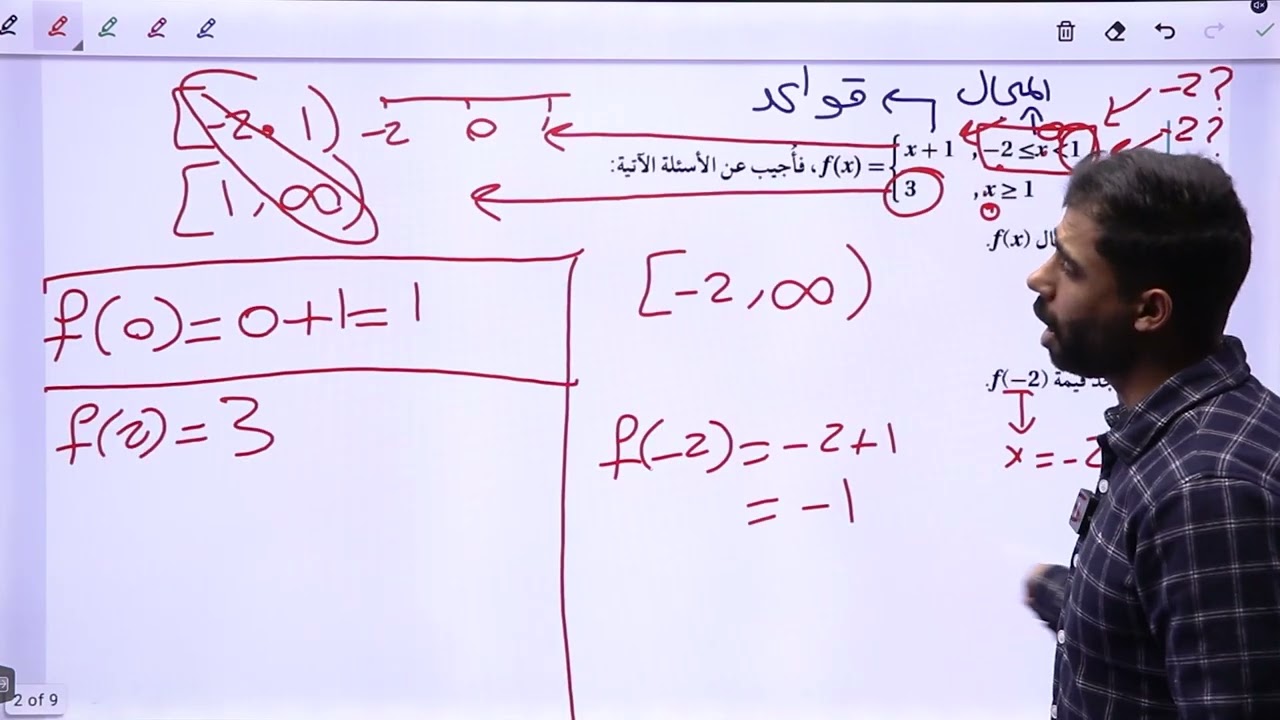 المجال ← قواعد
-2?
-2?
[-2, 1)
-2 0 1
[1, ∞)
f(x) = { x + 1 , -2 ≤ x < 1
3 , x ≥ 1
، فأُجيب عن الأسئلة الآتية:
f(x).
[-2, ∞)
f(0) = 0+1 = 1
f(2) = 3
قيمة f(−2).
x = -2
f(-2) = -2+1
= -1
2 of 9